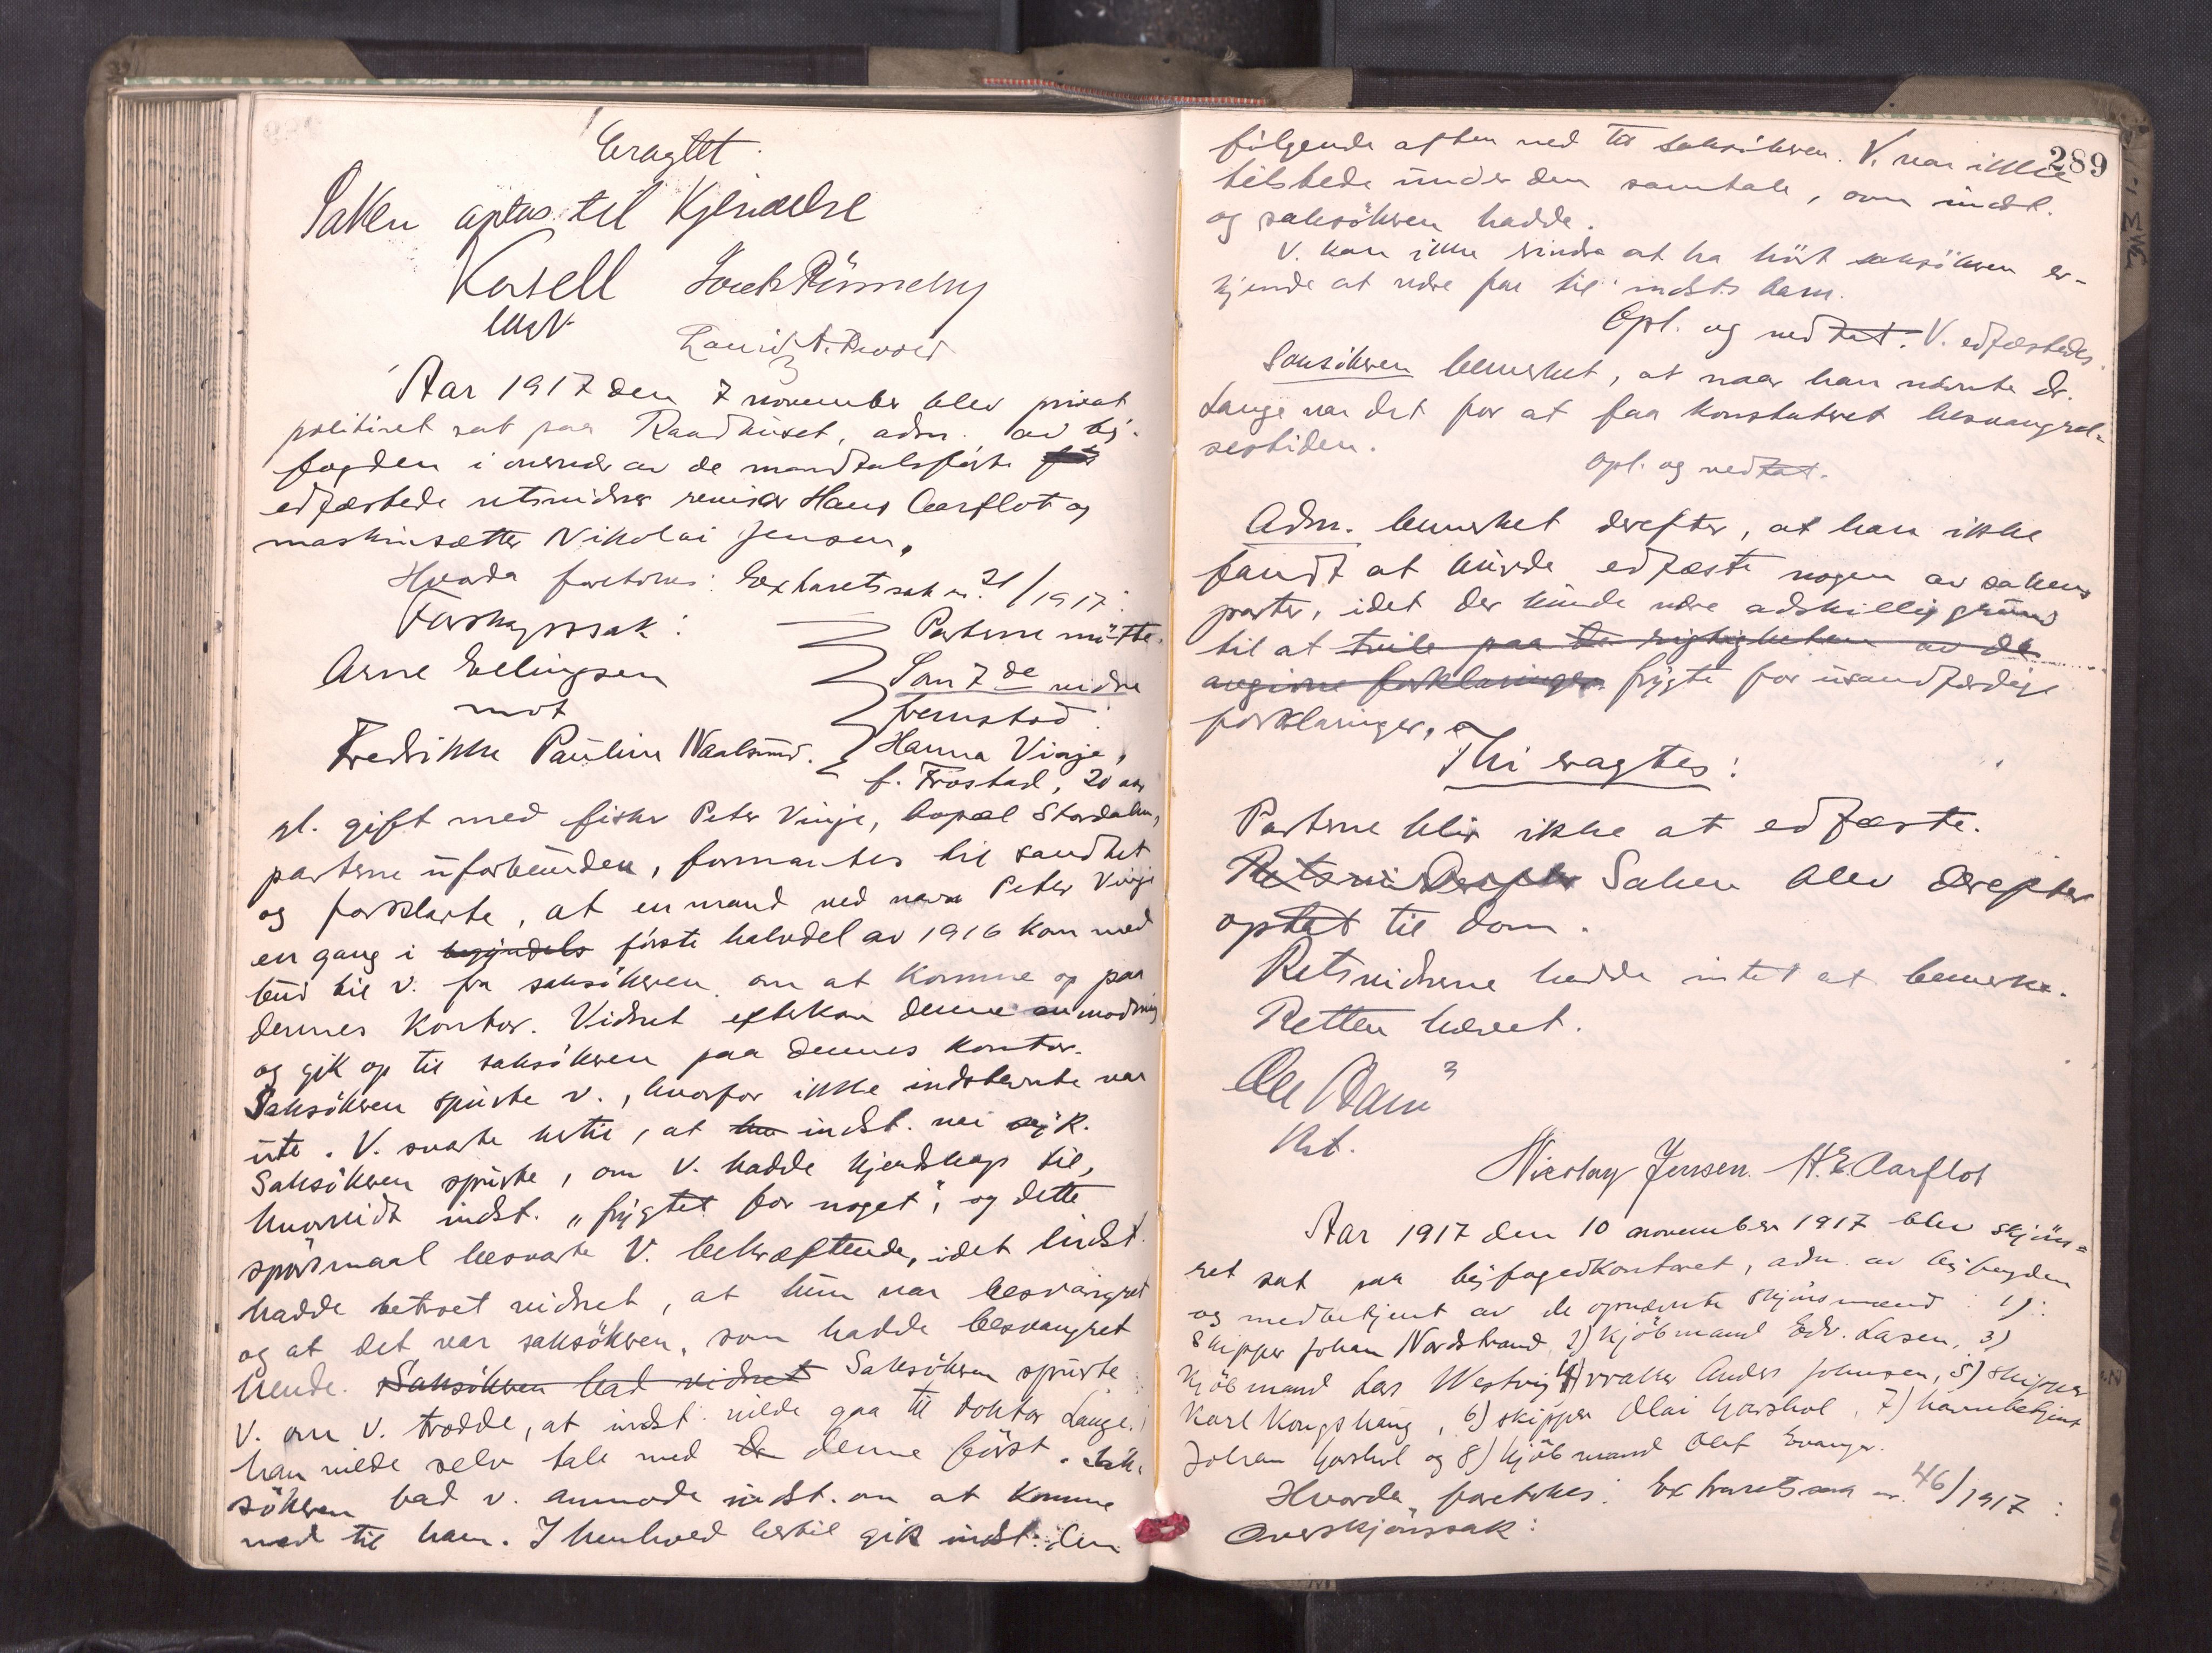 Eragtet.
Saken optas til Kjendelse
Aar 1917 den 7 november blev privat
politiret sat paa Raadhuset, adm. av by-
fogden i overvær av de mandtalsførte
edfæstede retsvidner revisor Hans Aarflot og
maskinsætter Nikolai Jensen,
Hvorda foretokes: Extraretssak nr. 21/1917:
Farskapssak:
Partene møtte.
Arne Ellingsen
Som 7de vidne
mot
fremstod:
Fredrikke Pauline Naalsund.
Hanna Vinje,
f. Frostad, 20 aar
gl. gift med fisker Peter Vinje, bopæl Stordalen,
parterne uforbunden, formantes til sandhet
og forklarte, at en mand ved navn Peter Vinje
en gang i begyndels første halvdel av 1916 kom med
bud til v. fra saksøkeren om at komme op paa
dennes kontor. Vidnet efterkom denne anmodning
og gik op til saksøkeren paa dennes kontor.
Saksøkeren spurte v., hvorfor ikke indstevnte var
ute. V. svarte hertil, at hun indst. var syk.
Saksøkeren spurte, om V. hadde kjendskap til,
hvorvidt indst. „frygtet for noget", og dette
spørsmaal besvarte V. bekræftende, idet indst.
hadde betroet vidnet, at hun var besvangret
og at det var saksøkeren, som hadde besvangret
hende. Saksøkeren bad vidnet Saksøkeren spurte
V. om V. trodde, at indst. vilde gaa til doktor Lange.
han vilde selv tale med da denne først. Sak-
søkeren bad v. anmode indst. om at komme
ned til ham. I henhold hertil gik indst. den
289
følgende aften ned til saksøkeren. V. var ikke
tilstede under den samtale, som indst.
og saksøkeren hadde.
V. kan ikke erindre at ha hørt saksøkeren er-
kjende at være far til indst.s barn.
Opl. og vedtat. V. edfæstedes.
Saksøkeren bemerket, at naar han nævnte dr.
Lange var det for at faa konstateret besvangrel-
sestiden.
Opl. og vedtat.
Adm. bemerket derefter, at han ikke
fandt at burde edfæste nogen av sakens
parter, idet der kunde være adskillig grund
til at tvile paa de rigtigheten av de
avgivne forklaringer frygte for usandfærdige
forklaringer,
Thi eragtes:
Parterne blir ikke at edfæste.
Retsvi Derefter Saken blev derefter
optat til dom.
Retsvidnerne hadde intet at bemerke.
Retten hævet.
Nicolay Jensen. H. E. Aarflot
Aar 1917 den 10 november 1917 blev skjøns-
ret sat paa byfogedkontoret, adm. av byfogden
og medbetjent av de opnævnte skjønsmænd: 1)
Skipper Johan Nordstrand, 2) kjøbmand Edv. Lasen, 3)
Kjøbmand Lars Westvig, 4) vraker Anders Johnsen, 5) skipper
Karl Kongshaug, 6) skipper Olai Garshol, 7) havnebetjent
Johan Garshol og 8) kjøbmand Olaf Evanger.
Hvorda foretokes: Extraretssak nr. 46/1917:
Overskjønssak: